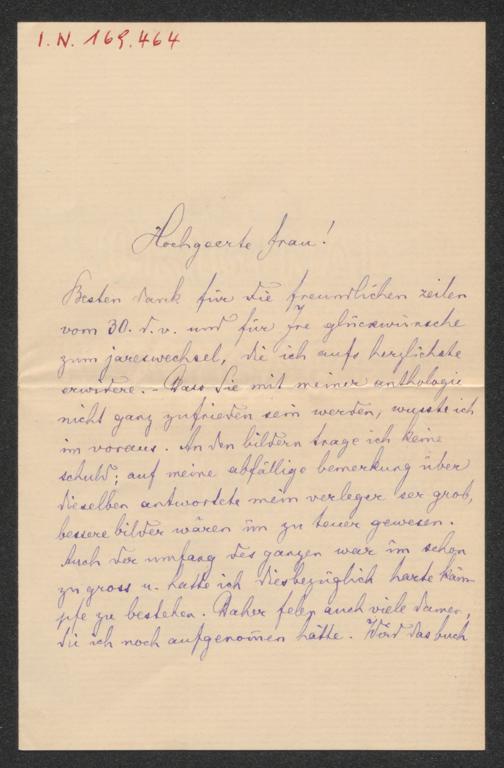 I. N. 169.464
Hochgeerte frau!
Besten dank für die freundlichen zeilen
vom 30. d. v. und für Ire glückwünsche
zum jareswechsel, die ich aufs herzlichste
erwidere. – Dass Sie mit meiner anthologie
nicht ganz zufrieden sein werden, wusste ich
im voraus. An den bildern trage ich keine
schuld; auf meine abfällige bemerkung über
dieselben antwortete mein verleger ser grob,
bessere bilder wären im zu teuer gewesen.
Auch der umfang des ganzen war im schon
zu gross u. hatte ich diesbezüglich harte käm-
pfe zu bestehen. Daher felen auch viele damen,
die ich noch aufgenom̄en hätte. Wird das buch